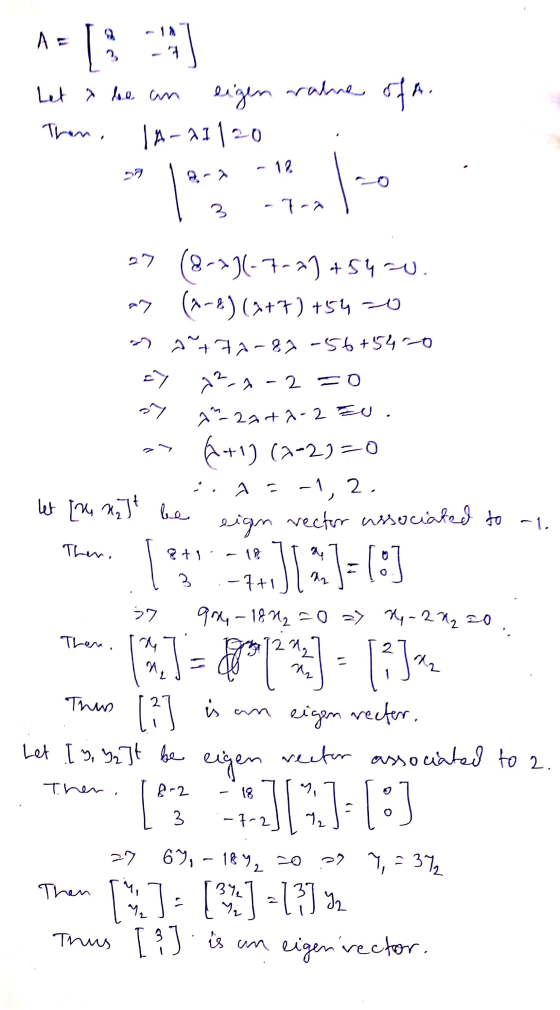 A = [8 -18
3 -7]
Let λ be an eigen value of A.
Then, |A-λI|=0
=> |8-λ -18
3 -7-λ| =0
=> (8-λ)(-7-λ)+54=0.
=> (λ-8)(λ+7)+54=0
=> λ²+7λ-8λ-56+54=0
=> λ²-λ-2=0
=> λ²-2λ+λ-2=0.
=> (λ+1)(λ-2)=0
∴ λ = -1, 2.
let [x₁ x₂]ᵗ be eign vector associated to -1.
Then, [8+1 -18
3 -7+1] [x₁
x₂] = [0
0]
=> 9x₁-18x₂=0 => x₁-2x₂=0.
Then, [x₁
x₂] = [2x₂
x₂] = [2
1]x₂
Thus [2
1] is an eigen vector.
Let [y₁ y₂]ᵗ be eigen vector associated to 2.
Then, [8-2 -18
3 -7-2] [y₁
y₂] = [0
0]
=> 6y₁-18y₂=0 => y₁=3y₂
Then [y₁
y₂] = [3y₂
y₂] = [3
1]y₂
Thus [3
1] is an eigen vector.